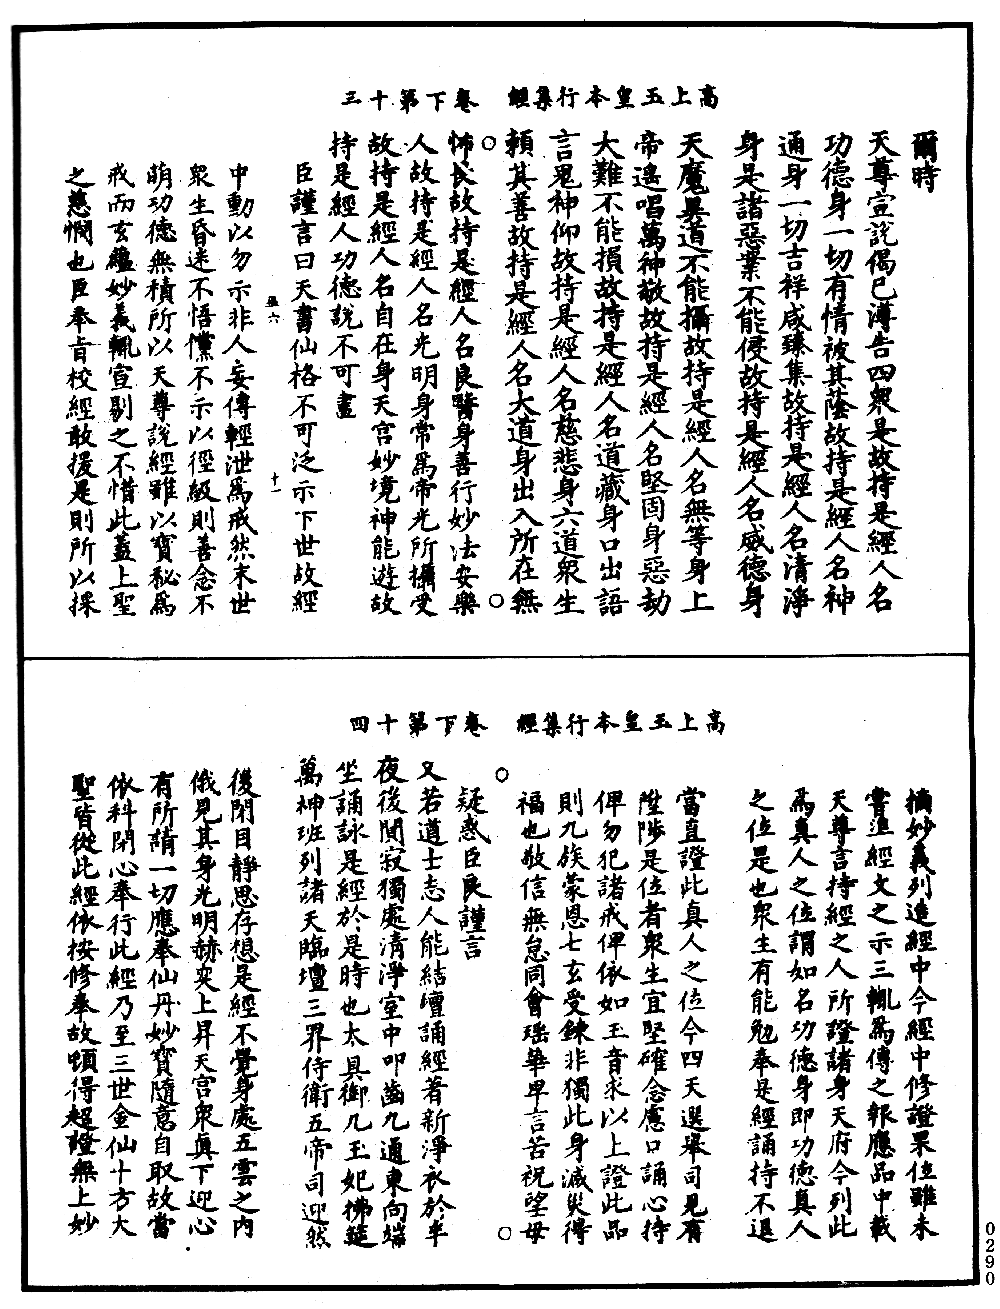 高上玉皇本行集經　卷下第十三
爾時
天尊宣說偈已溥告四眾是故持是經人名
功德身一切有情被其蔭故持是經人名神
通身一切吉祥咸臻集故持是經人名清淨
身是諸惡業不能侵故持是經人名威德身
天魔異道不能攝故持是經人名無等身上
帝遙唱萬神敬故持是經人名堅固身惡劫
大難不能損故持是經人名道藏身口出語
言鬼神仰故持是經人名慈悲身六道眾生
賴其善故持是經人名大道身出入所在無
怖畏故持是經人名良醫身善行妙法安樂
人故持是經人名光明身常為帝光所攝受
故持是經人名自在身天宮妙境神能遊故
持是經人功德說不可盡
臣謹言曰天書仙格不可泛示下世故經
十一
中動以勿示非人妄傳輕泄為戒然末世
眾生昏迷不悟儻不示以徑級則善念不
萌功德無積所以天尊說經雖以寶秘為
戒而玄蘊妙義輒宣剔之不惜此蓋上聖
之慈憫也臣奉旨校經敢援是則所以採
高上玉皇本行集經　卷下第十四
摘妙義列造經中今經中修證果位雖未
嘗追經文之示三輒為傳之報應品中載
天尊言持經之人所證諸身天府今列此
為真人之位謂如名功德身即功德真人
之位是也眾生有能勉奉是經誦持不退
當直證此真人之位今四天選舉司見有
陞陟是位者眾生宜堅確念慮口誦心持
俾勿犯諸戒俾依如玉音求以上證此品
則九族蒙恩七玄受鍊非獨此身滅災得
福也敬信無怠同會瑤華早言苦祝望毋
疑惑臣良謹言
又若道士志人能結壇誦經著新淨衣於半
夜後闃寂獨處清淨室中叩齒九通東向端
坐誦詠是經於是時也太真御几玉妃拂筵
萬神班列諸天臨壇三界侍衛五帝司迎然
後閉目靜思存想是經不覺身處五雲之內
俄見其身光明赫奕上昇天宮眾真下迎心
有所請一切應奉仙丹妙寶隨意自取故當
依科閉心奉行此經乃至三世金仙十方大
聖皆從此經依按修奉故頓得超證無上妙
0290